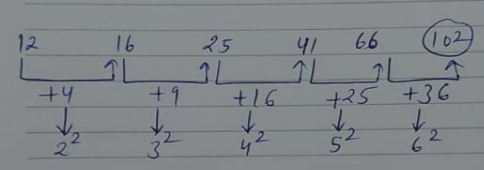 12 16 25 41 66 102
+4 +9 +16 +25 +36
2² 3² 4² 5² 6²